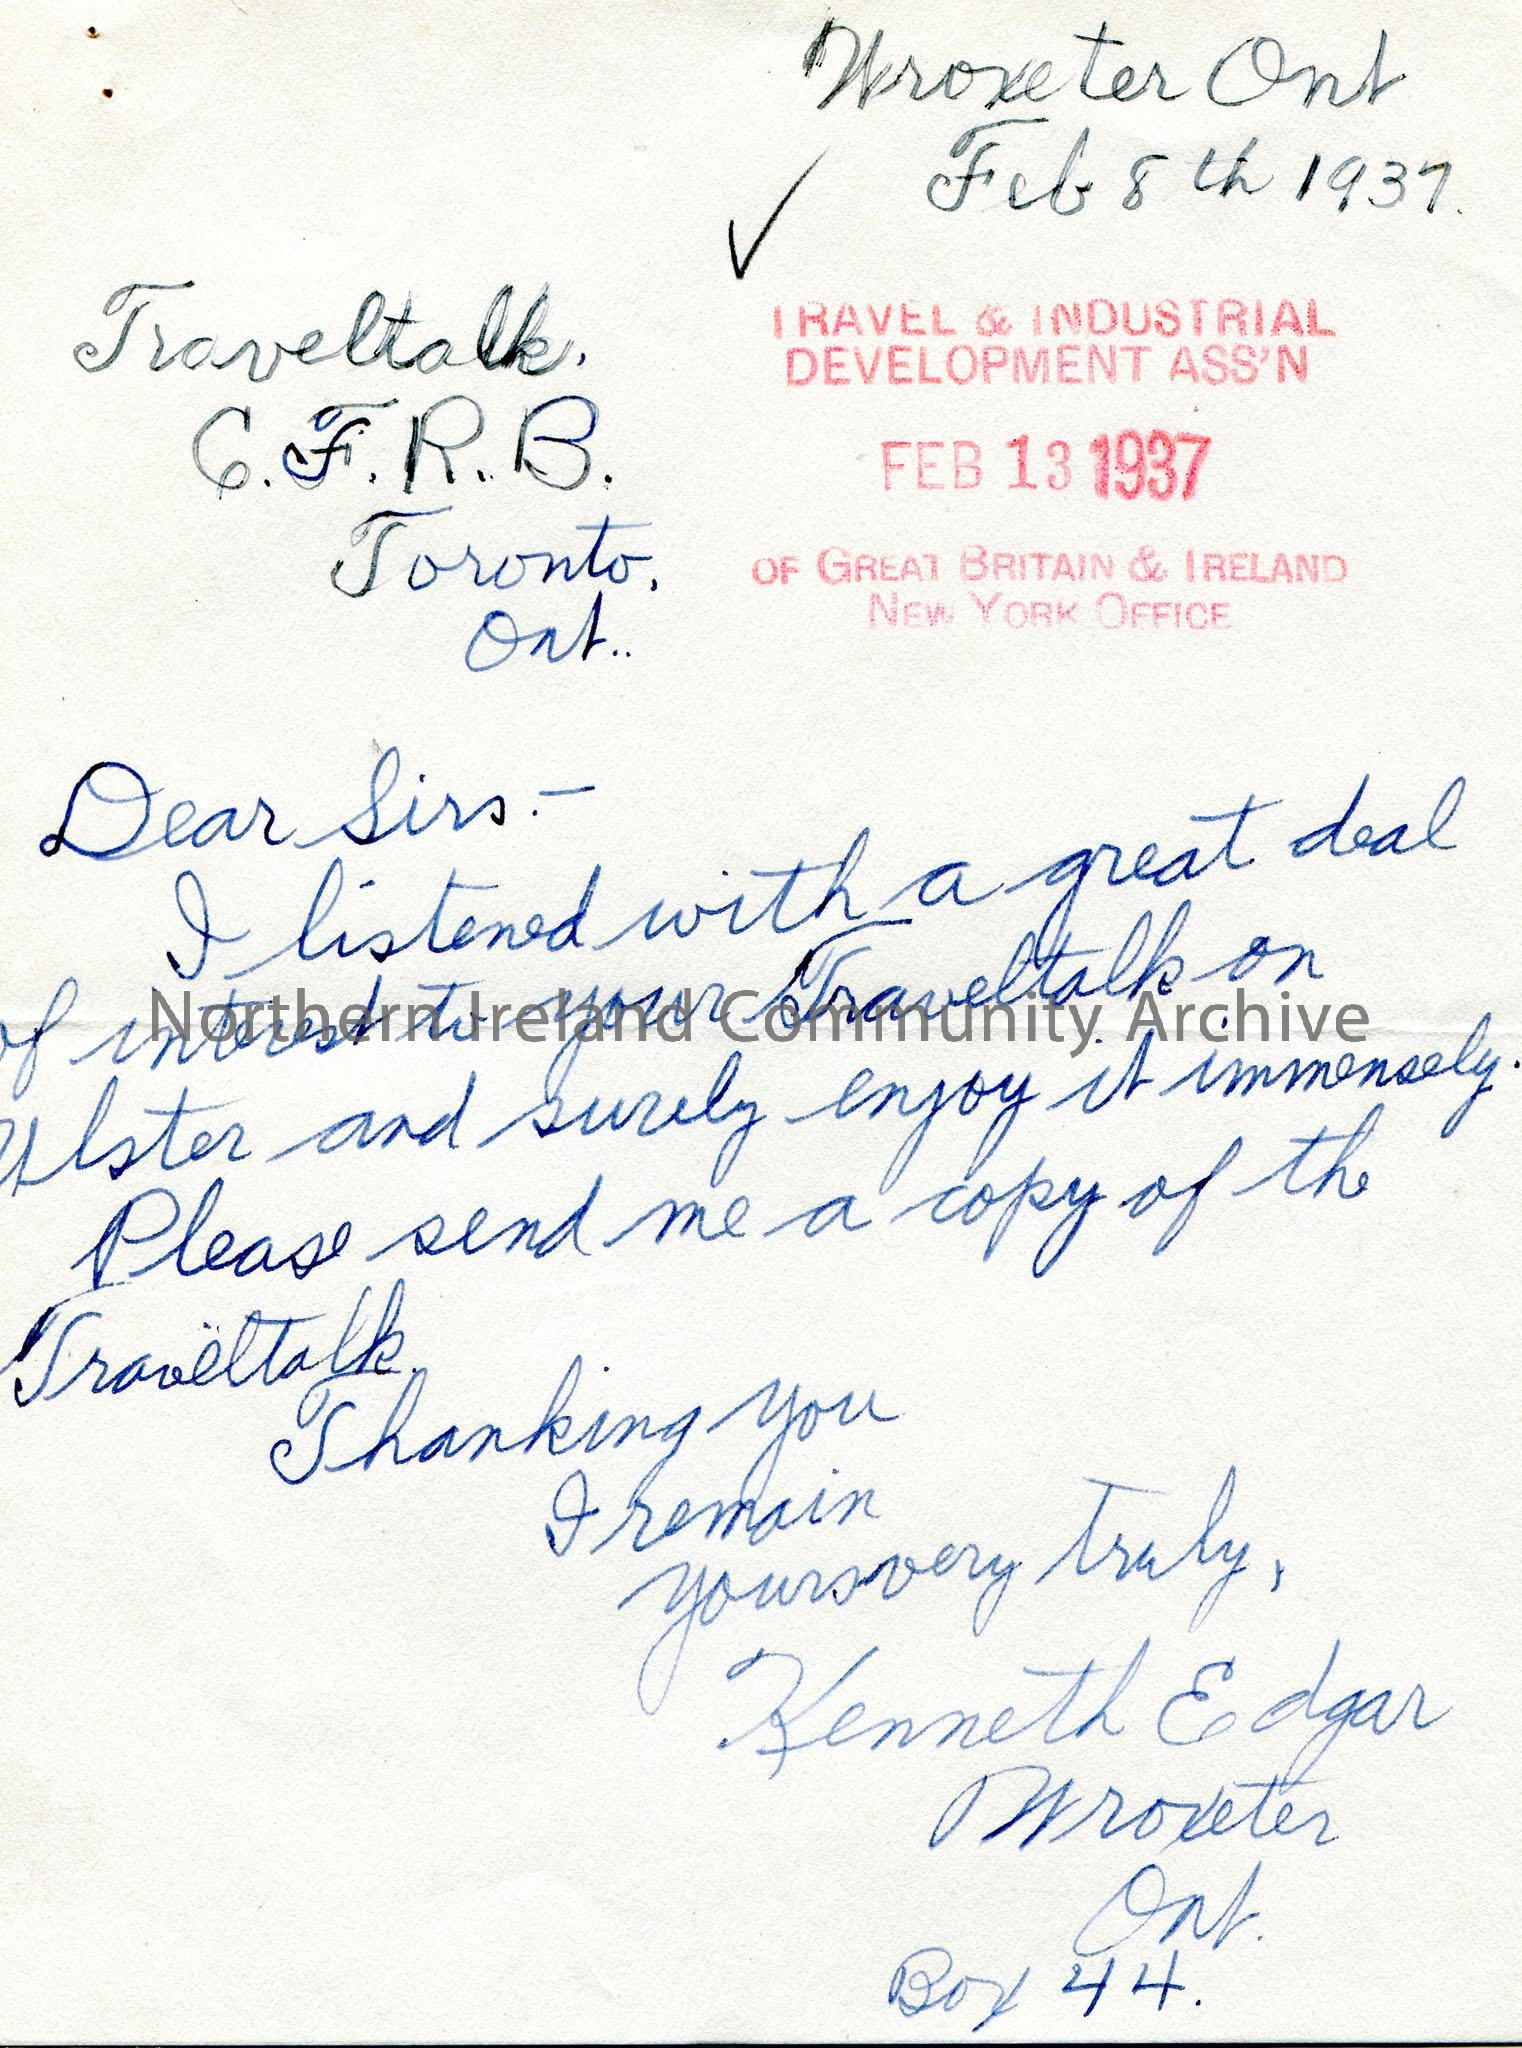 Wroxeter Ont
Feb 8th 1937.
Traveltalk.
C.F.R.B.
Toronto,
Ont..
TRAVEL & INDUSTRIAL
DEVELOPMENT ASS'N
FEB 13 1937
OF GREAT BRITAIN & IRELAND
NEW YORK OFFICE
Dear Sirs:-
I listened with a great deal
of interest to your Traveltalk on
Ulster and surely enjoy it immensely.
Please send me a copy of the
Traveltalk.
Thanking you
I remain
yours very truly,
Kenneth Edgar
Wroxeter
Ont.
Box 44.
Northern Ireland Community Archive